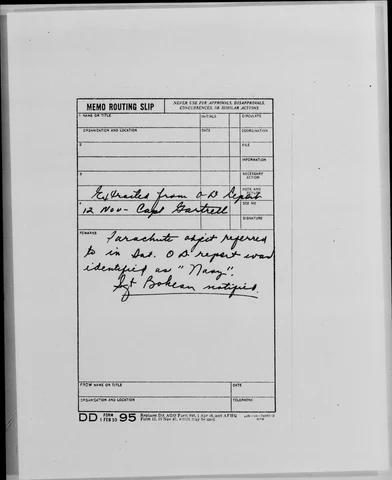 MEMO ROUTING SLIP
NEVER USE FOR APPROVALS, DISAPPROVALS,
CONCURRENCES, OR SIMILAR ACTIONS
1 NAME OR TITLE
INITIALS
CIRCULATE
ORGANIZATION AND LOCATION
DATE
COORDINATION
2
FILE
INFORMATION
3
NECESSARY
ACTION
NOTE AND
Extracted from O-D Report
4
SEE ME
12 Nov - Capt Gartrell
SIGNATURE
REMARKS
Parachute object referred
to in Sat. O D report was
identified as "Navy".
Sgt notified.
FROM NAME OR TITLE
DATE
ORGANIZATION AND LOCATION
TELEPHONE
DD FORM 95
1 FEB 50
Replaces DA AGO Form 895, 1 Apr 48, and AFHQ
Form 12, 10 Nov 47, which may be used.